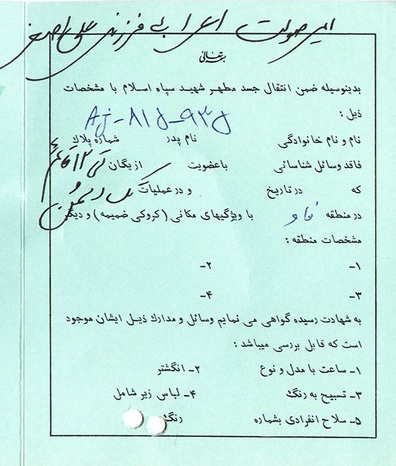 امیر صولت اعرابی فرزند علی اصغر
بسمه‌تعالی
بدینوسیله ضمن انتقال جسد مطهر شهید سپاه اسلام با مشخصات
ذیل :
AJ-81J-93J
نام و نام خانوادگی نام پدر شماره پلاک
فاقد وسائل شناسائی با عضویت از یگان
که در تاریخ و در عملیات
در منطقه فاو با ویژگیهای مکانی (کروکی ضمیمه) و دیگر
مشخصات منطقه :
۱- ۲-
۳- ۴-
به شهادت رسیده گواهی می نمایم وسائل و مدارک ذیل ایشان موجود
است که قابل بررسی میباشد :
۱- ساعت با مدل و نوع ۲- انگشتر
۳- تسبیح به رنگ ۴- لباس زیر شامل
۵- سلاح انفرادی بشماره رنگ